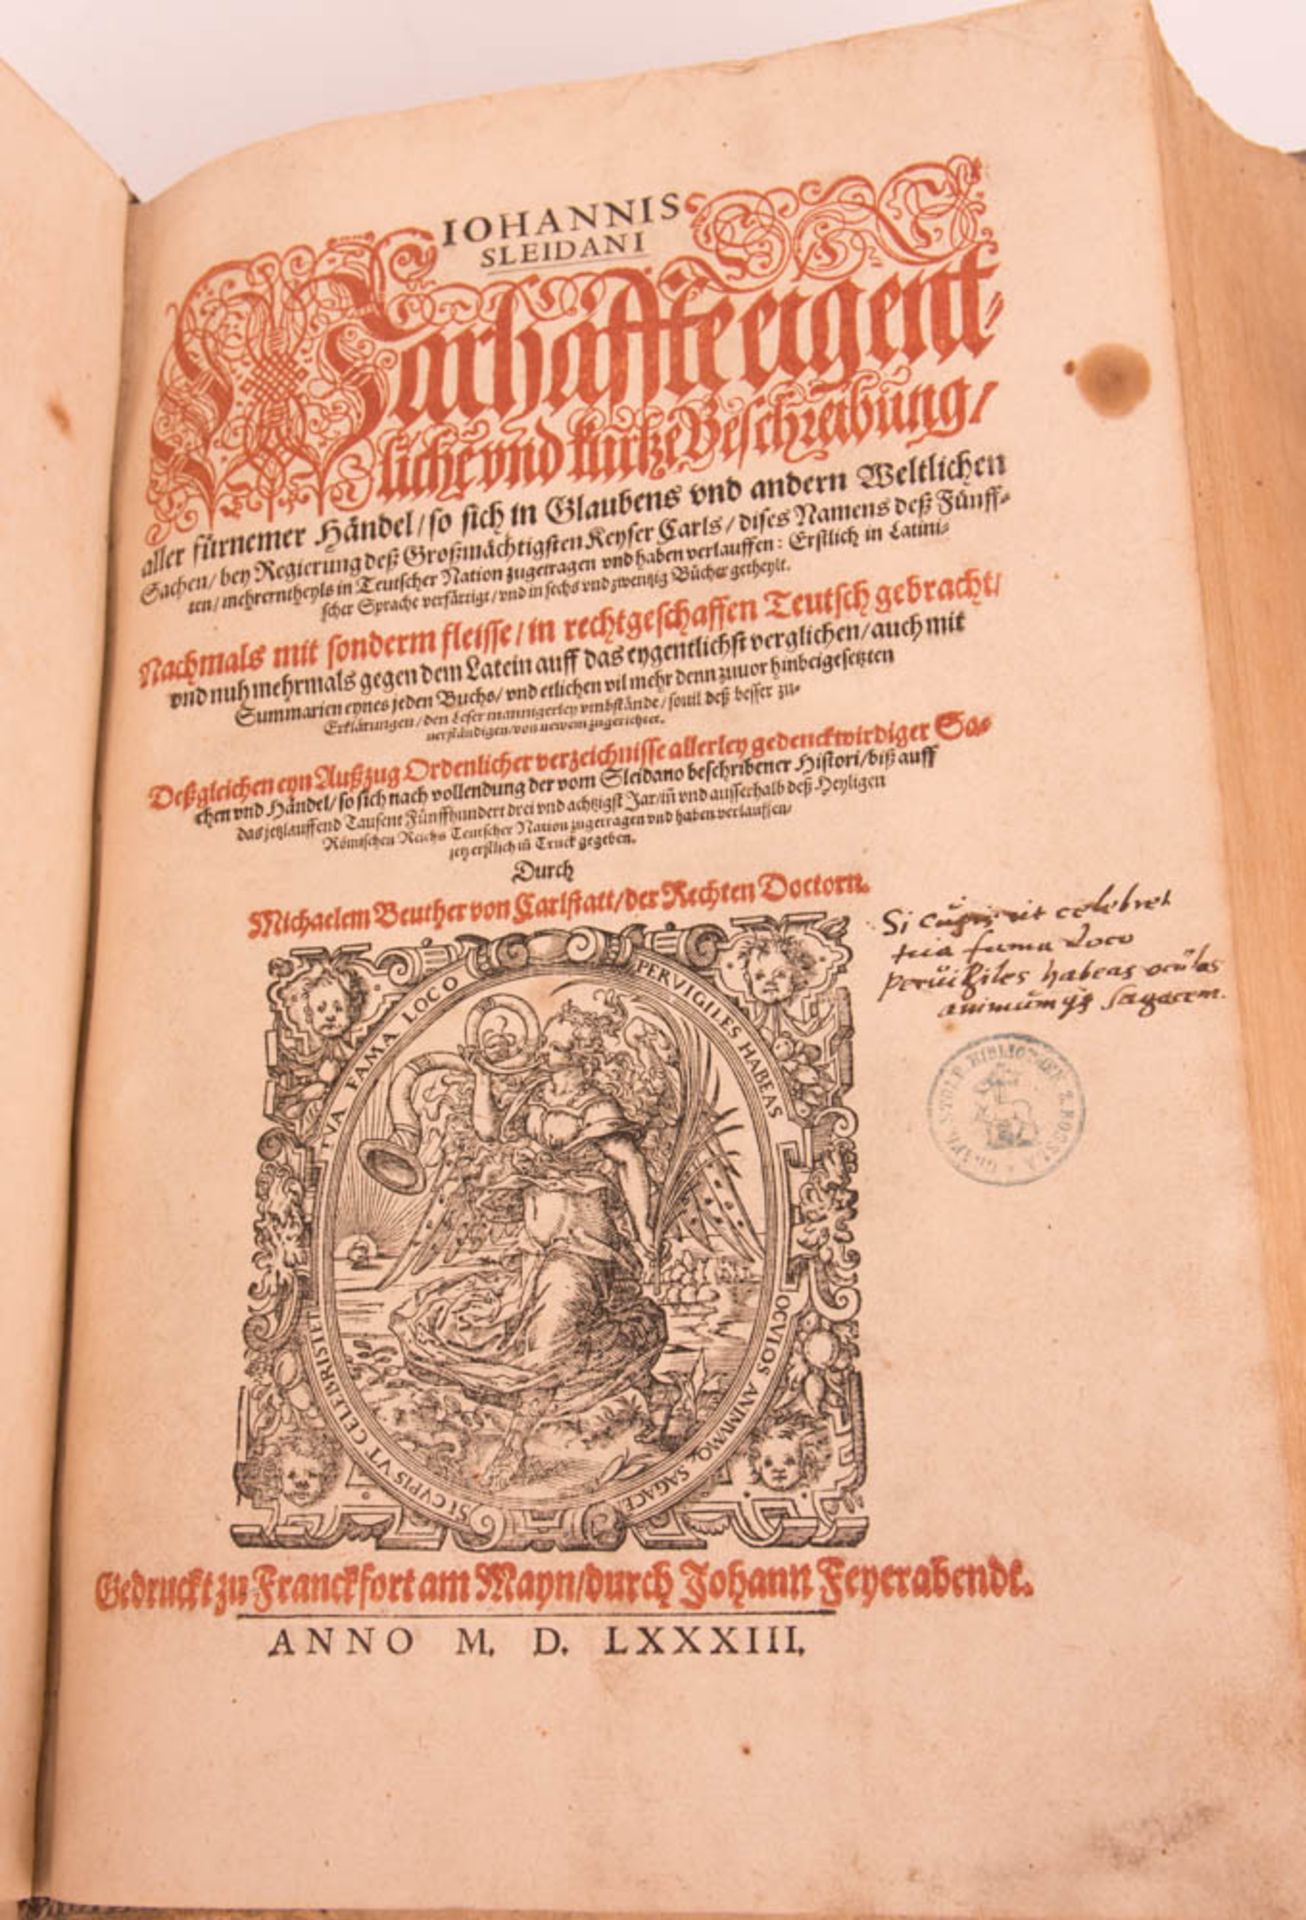 IOHANNIS
SLEIDANI
Warhaffte eigent-
liche vnd kurtze Beschreibung/
aller fürnemer Händel/ so sich in Glaubens vnd andern Weltlichen
Sachen/ bey Regierung deß Großmächtigsten Keyser Carls/ dises Namens deß Fünff-
ten/ mehrerntheyls in Teutscher Nation zugetragen vnd haben verlauffen: Erstlich in Latini-
scher Sprache verfärtigt/ vnd in sechs vnd zwentzig Bücher getheylt.
Nachmals mit sonderm fleisse/ in rechtgeschaffen Teutsch gebracht/
vnd nuh mehrmals gegen dem Latein auff das eygentlichst verglichen/ auch mit
Summarien eynes jeden Buchs/ vnd etlichen vil mehr denn zuuor hinbeigesetzten
Erklärungen/ den Leser mannigerley vmbstände/ souil deß besser zu-
uerständigen/ von newem zugerichtet.
Deßgleichen eyn Außzug Ordenlicher verzeichnisse allerley gedenckwirdiger Sa-
chen vnd Händel/ so sich nach vollendung der vom Sleidano beschribener Histori/ biß auff
das jetzlauffend Tausent Fünffhundert drei vnd achtzigst Jar/ in vnd ausserhalb deß Heyligen
Römischen Reichs Teutscher Nation zugetragen vnd haben verlauffen/
jetz erstlich in Truck gegeben.
Durch
Michaelem Beuther von Carlstatt/ der Rechten Doctorn.
Si cupis ut celebret
tua fama loco
peruigiles habeas oculos
animumq3 sagacem.
SI CVPIS VT CELEBRI STET TVA FAMA LOCO
PERVIGILES HABEAS OCVLOS ANIMVMQ, SAGACE
BIBLIOTHEK Z.
Gedruckt zu Franckfort am Mayn/ durch Johann Feyerabendt.
ANNO M. D. LXXXIII.